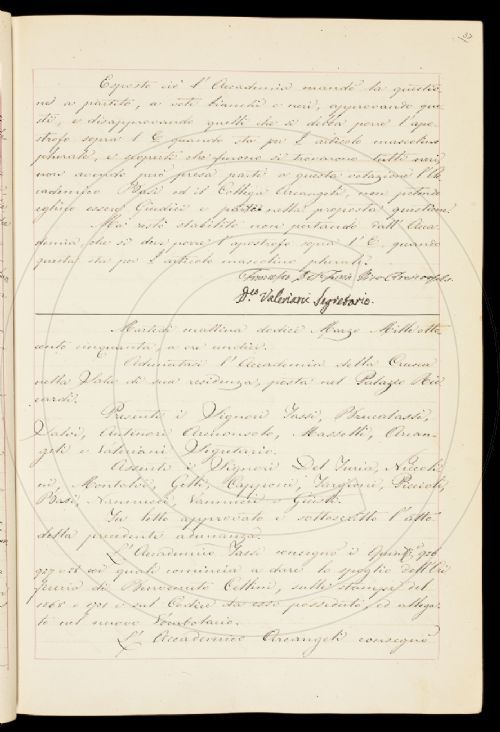 37
Esposto ciò l'Accademia mandò la questio-
ne a partito, a voti bianchi e neri, approvando que-
sti, e disapprovando quelli che si debba porre l'apo-
strofo sopra l'E quando sta per l'articolo mascolino
plurale, e scoperti che furono si trovarono tutti neri
non avendo però presa parte a questa votazione l'Ac-
cademico Basi ed il Collega Arcangeli, non potendo
eglino essere Giudici e parti nella proposta questione.
Ma restò stabilito non pertanto dall'Acca-
demia che si devi porre l'apostrofo sopra l'E, quando
questa sta per l'articolo mascolino plurale.
Francesco Del Furia Arciconsolo
Valeriani Segretario.
Martedì mattina dodici Marzo Milleotto-
cento cinquanta, a ore undici.
Adunatasi l'Accademia della Crusca
nella Sala di sua residenza, posta nel Palazzo Ric-
cardi.
Presenti i Signori Tassi, Brucalassi,
Salvi, Antinori Arciconsolo, Masselli, Arcan-
geli e Valeriani Segretario.
Assenti i Signori Del Furia, Niccoli-
ni, Montalvi, Gelli, Capponi, Targioni, Piccioli,
Basi, Nannucci, Vannucci e Giusti.
Fu letto approvato e sottoscritto l'atto
della precedente adunanza.
L'Accademico Tassi consegnò i
quali comincia a dare lo spoglio dell'Ore-
ficeria di Benvenuto Cellini, sulle stampe del
1568 e 1731 e sul Codice da esse posseduto, ed allega-
te nel nuovo Vocabolario.
L'Accademico Arcangeli consegnò